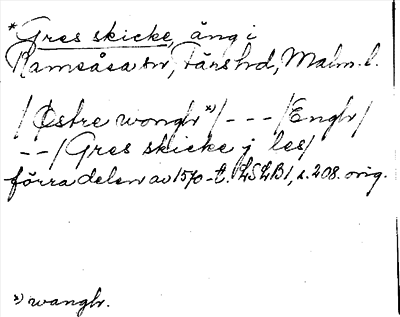 * Gres skicke, äng i
Ramsåsa sn, Färs hd, Malm. l.
/Østre wongh *)/ - - - /Engh/
- - /Gres skicke j les/
förra delen av 1570-t. LSLB1, s. 208. orig.
*) wangh.